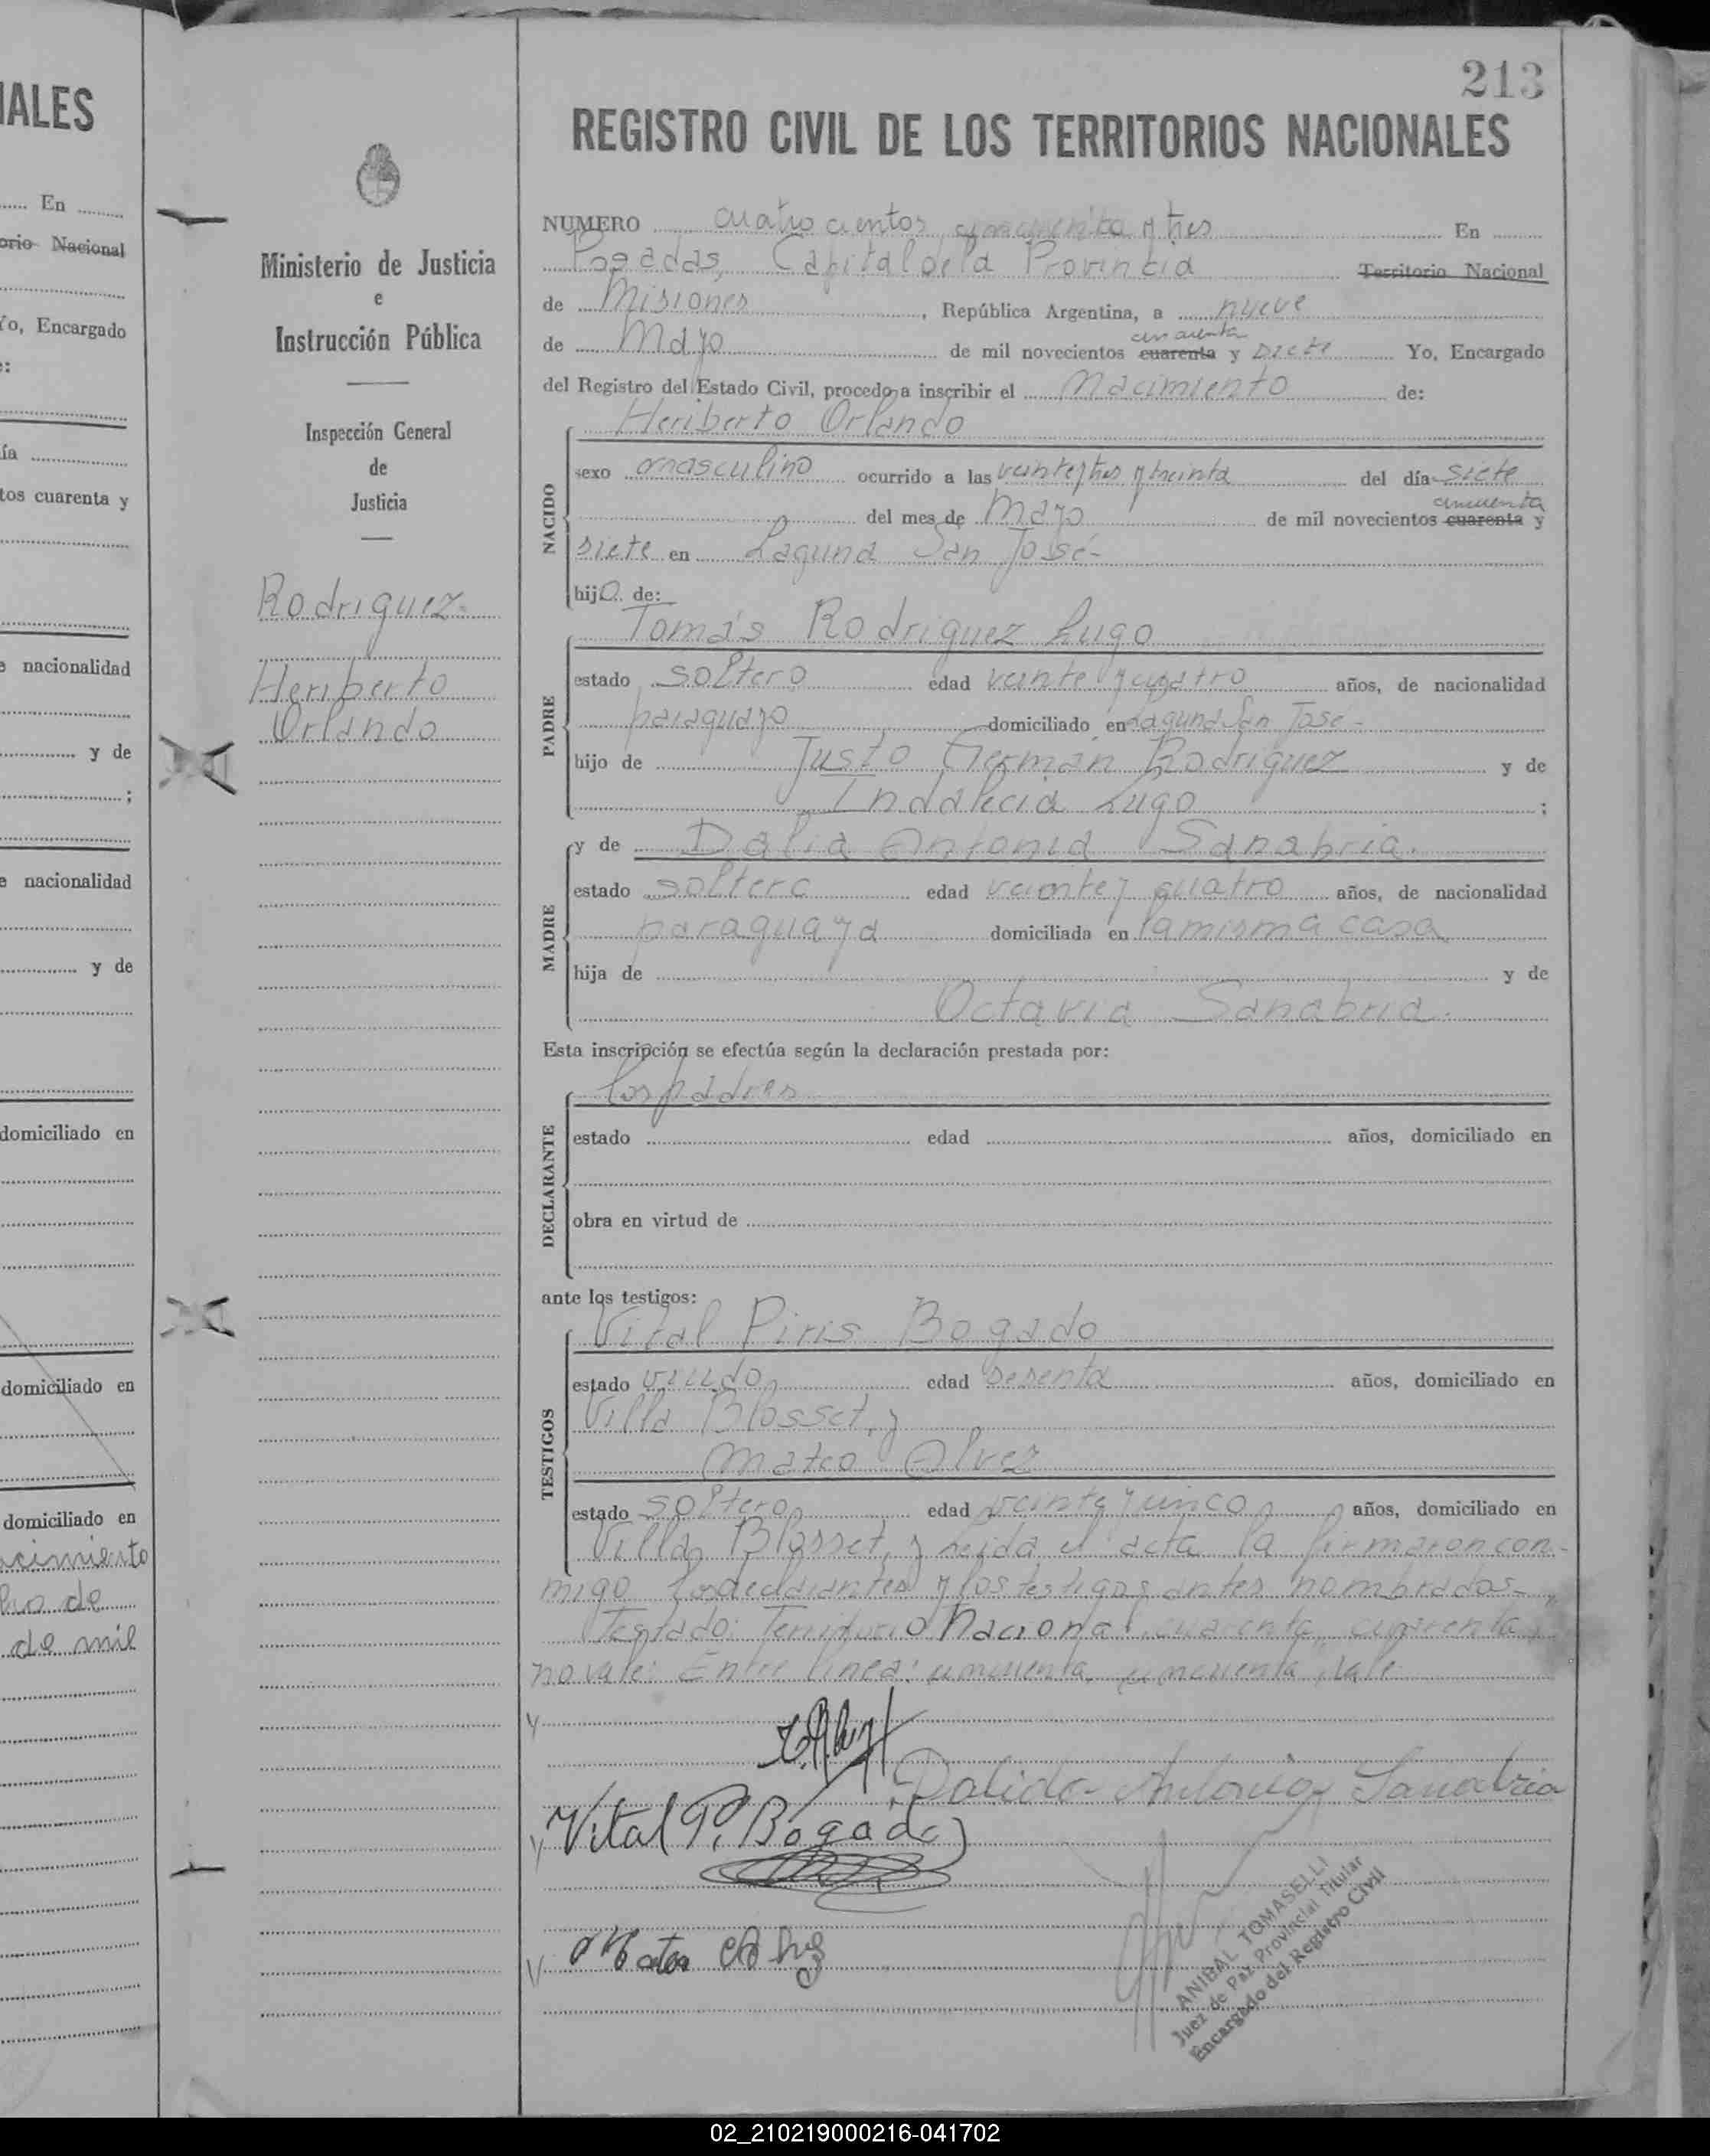 IALES
En
orio Nacional
Yo, Encargado
:
ía
tos cuarenta y
e nacionalidad
y de
;
e nacionalidad
y de
domiciliado en
domiciliado en
domiciliado en
de
de mil
Ministerio de Justicia
e
Instrucción Pública
Inspección General
de
Justicia
Rodriguez
Heriberto
Orlando
213
REGISTRO CIVIL DE LOS TERRITORIOS NACIONALES
NUMERO cuatrocientos cincuenta y tres En
Posadas, Capital de la Provincia Territorio Nacional
de Misiones, República Argentina, a nueve
cincuenta
de Mayo de mil novecientos cuarenta y siete Yo, Encargado
del Registro del Estado Civil, procedo a inscribir el Nacimiento de:
Heriberto Orlando
NACIDO
sexo masculino ocurrido a las veintetres y treinta del día siete
cincuenta
del mes de Mayo de mil novecientos cuarenta y
siete en Laguna San José-
hijo de:
Tomás Rodriguez Lugo
PADRE
estado soltero edad veinte y cuatro años, de nacionalidad
paraguayo domiciliado en Laguna San José-
hijo de Justo Germán Rodriguez y de
Indalecia Lugo ;
y de Dalia Antonia Sanabria.
MADRE
estado soltera edad veinte y cuatro años, de nacionalidad
paraguaya domiciliada en la misma casa
hija de y de
Octavia Sanabria.
Esta inscripción se efectúa según la declaración prestada por:
los padres
DECLARANTE
estado edad años, domiciliado en
obra en virtud de
ante los testigos:
Vital Piris Bogado
TESTIGOS
estado viudo edad sesenta años, domiciliado en
Villa Blosset, y
Mateo Alvez
estado soltero edad veinte y cinco años, domiciliado en
Villa Blosset, y leida el acta la firmaron con-
migo los declarantes y los testigos antes nombrados-
Testado: Territorio Nacional, cuarenta, cuarenta,
no vale: Entre linea: cincuenta, cincuenta, vale
Antonia Sanabria
Vital P. Bogado
ANIBAL TOMASELLI
Juez de Paz Provincial Titular
Encargado del Registro Civil
02_210219000216-041702